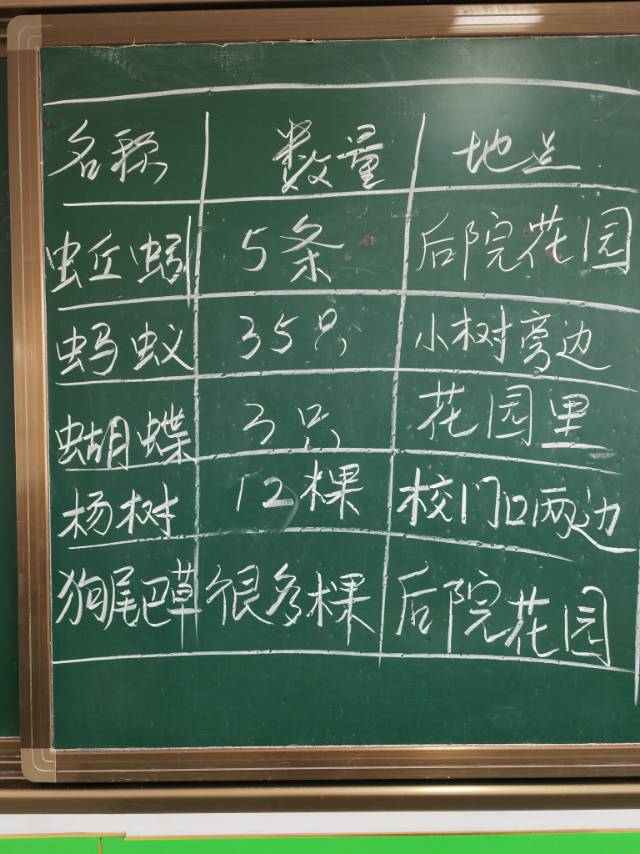 名称 数量 地点
蚯蚓 5条 后院花园
蚂蚁 35只 小树旁边
蝴蝶 3只 花园里
杨树 12棵 校门口两边
狗尾巴草 很多棵 后院花园